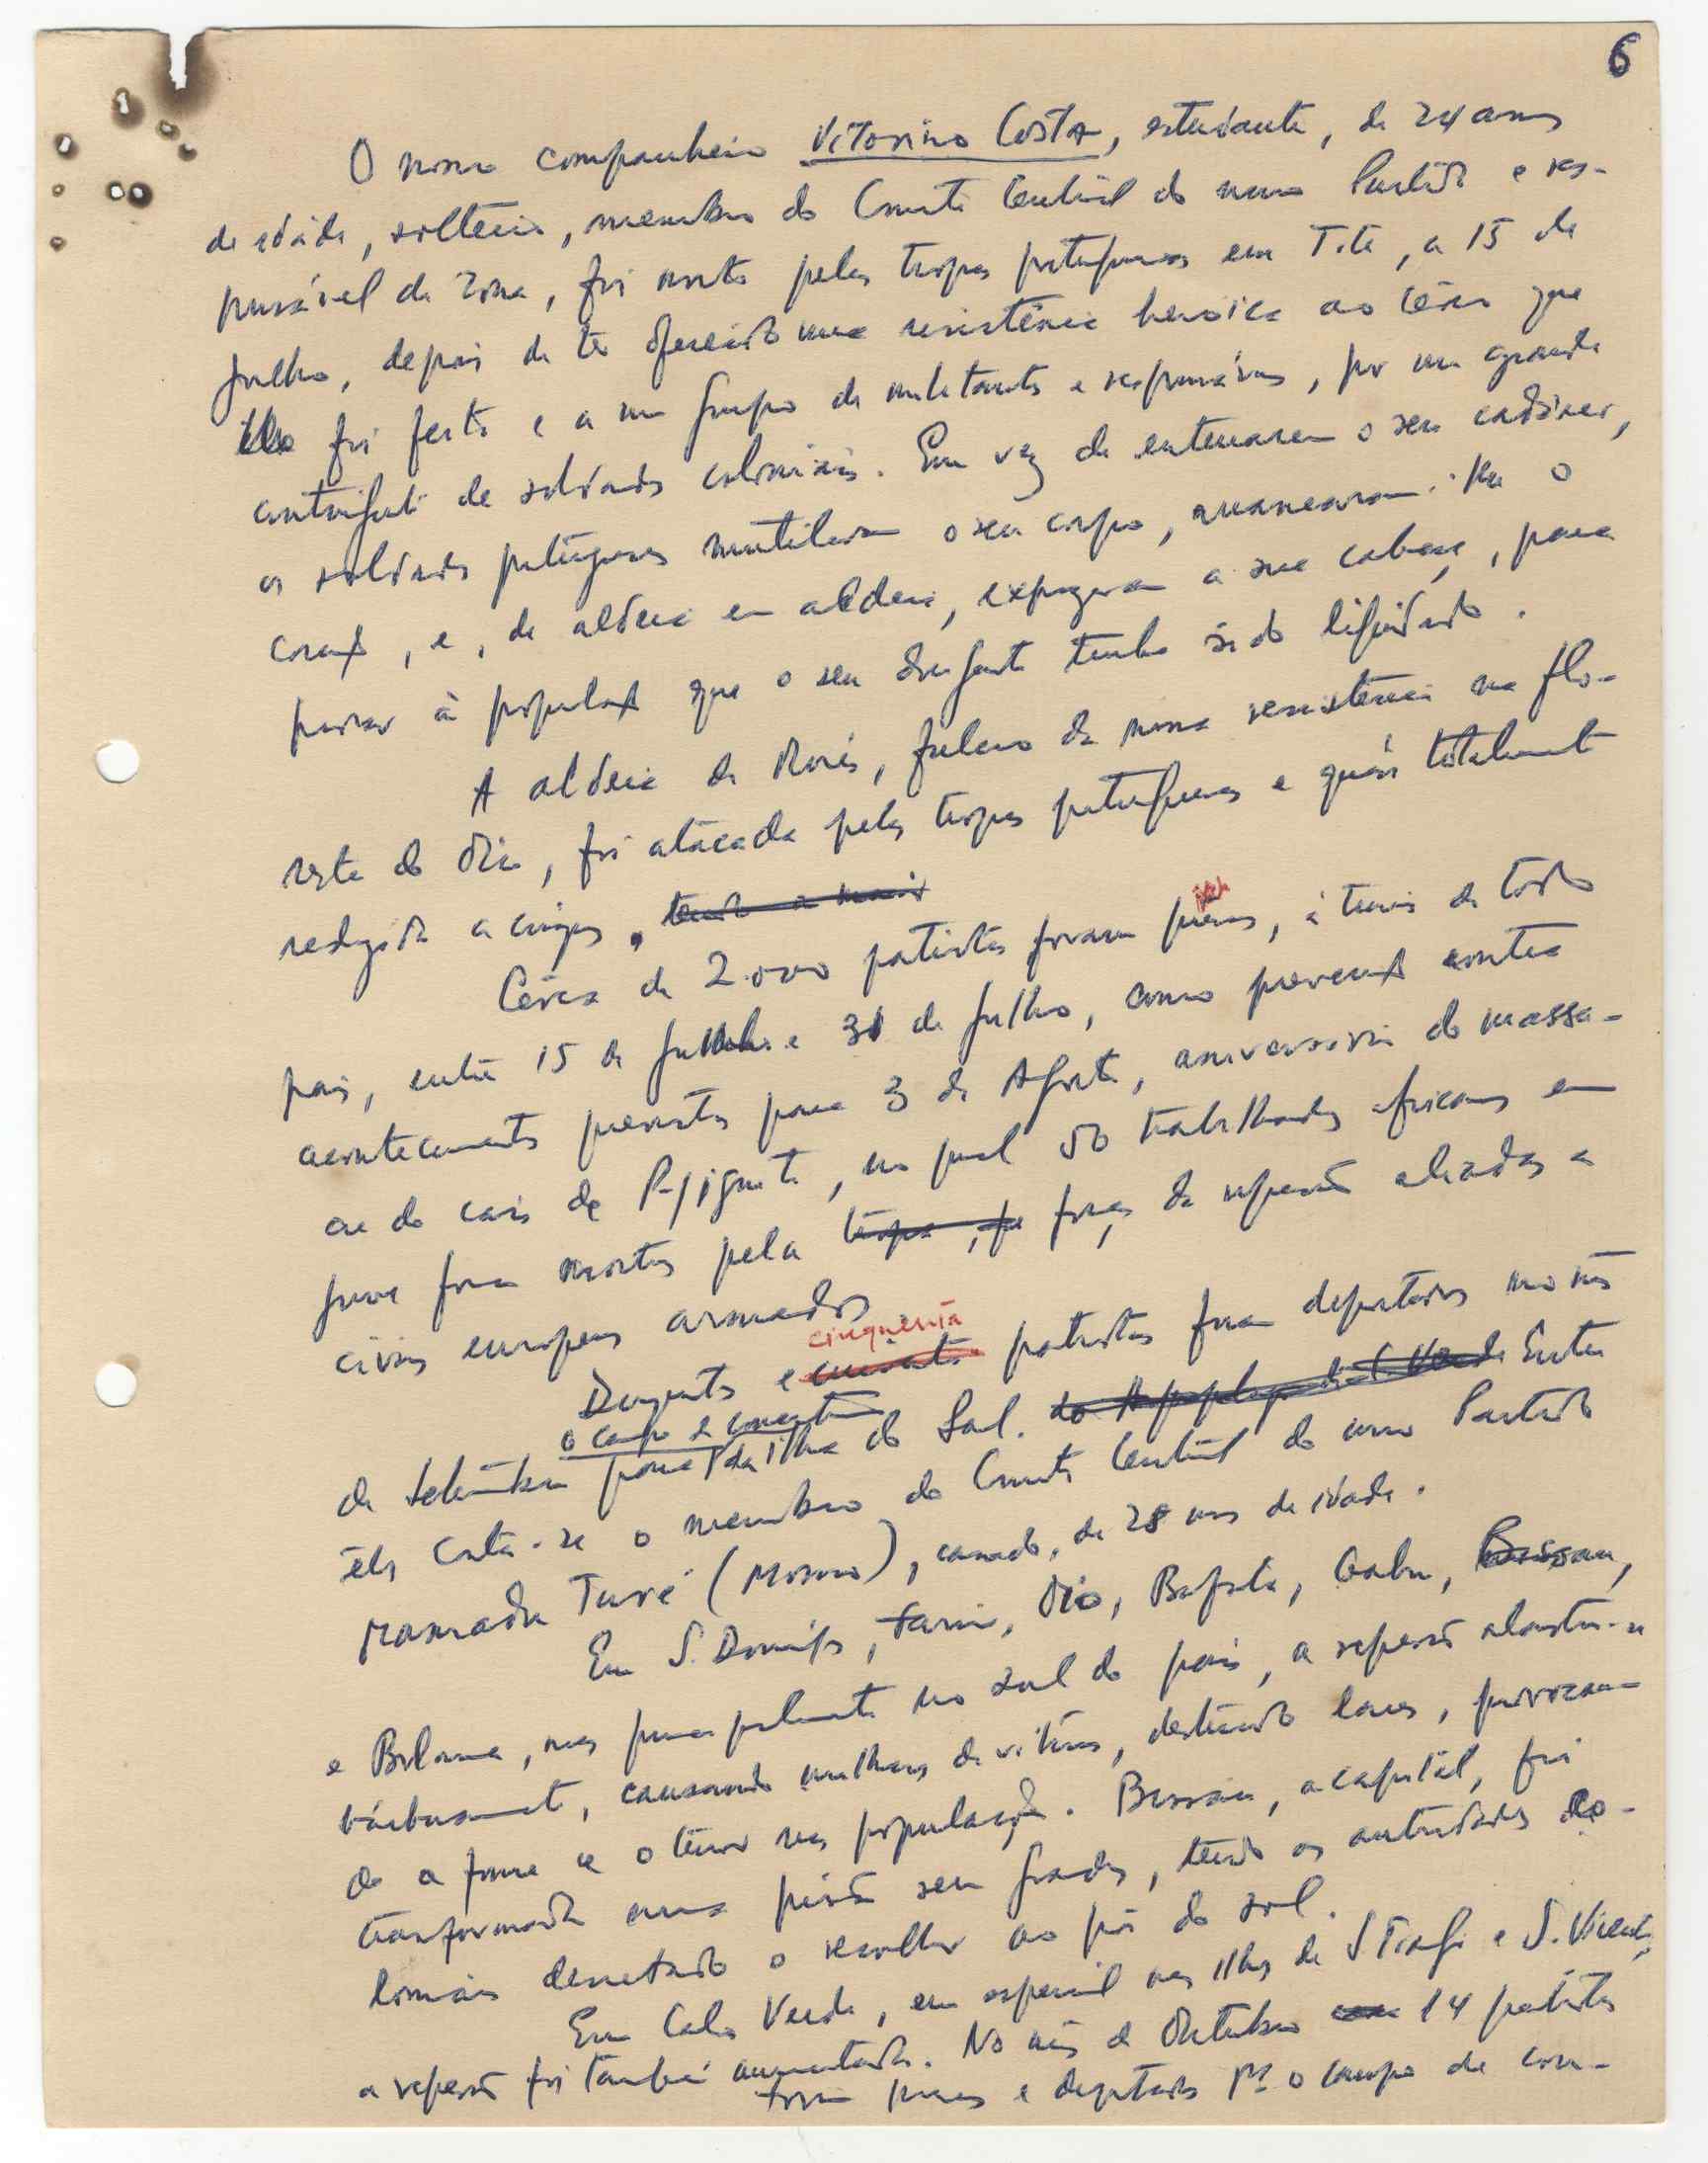 6
O nosso companheiro Vitorino Costa, estudante, de 24 anos
de idade, solteiro, membro do Comité Central do nosso Partido e res-
ponsável de Zona, foi morto pelas tropas portuguesas em Tite, a 15 de
Julho, depois de ter oferecido uma resistência heroica ao cêrco que
lhe foi feito e a um grupo de militantes e responsáveis, por um grande
contingente de soldados coloniais. Em vez de enterrarem o seu cadáver,
os soldados portugueses mutilaram o seu corpo, arrancaram-lhe o
coração, e, de aldeia em aldeia, expuzeram a sua cabeça, para
provar à população que o seu dirigente tinha sido liquidado.
A aldeia de Morés, fulcro da nossa resistência na flo-
resta do Oio, foi atacada pelas tropas portuguesas e quási totalmente
reduzida a cinzas, tendo a mais
Cêrca de 2.000 patriotas foram presos, através de todo o
país, entre 15 de Julho e 31 de Julho, como prevenção contra
acontecimentos previstos para 3 de Agosto, aniversário do massa-
cre do cais de Pijiguiti, no qual 50 trabalhadores africanos em
greve foram mortos pela tropa, forças de repressão aliadas a
civis europeus armados.
cinqüenta
Duzentos e patriotas foram deportados no mês
o campo de concentração
de Setembro para da ilha do Sal. do Arquipélago de C. Verde Entre
êles conta-se o membro do Comité Central do nosso Partido
Mamadu Turé (Momo), casado, de 28 anos de idade.
Em S. Domingos, Farim, Oio, Bafatá, Gabu, Bissau,
e Bolama, mas principalmente no sul do país, a repressão alastrou-se
bárbaramente, causando milhares de vítimas, destruindo lares, provocan-
do a fome e o terror nas populações. Bissau, a capital, foi
transformada numa prisão sem grades, tendo as autoridades co-
loniais decretado o recolher ao pôr do sol.
Em Cabo Verde, em especial nas Ilhas de S Tiago e S. Vicente,
a repressão foi também aumentada. No mês de Outubro 14 patriotas
foram presos e deportados pª o campo de con-